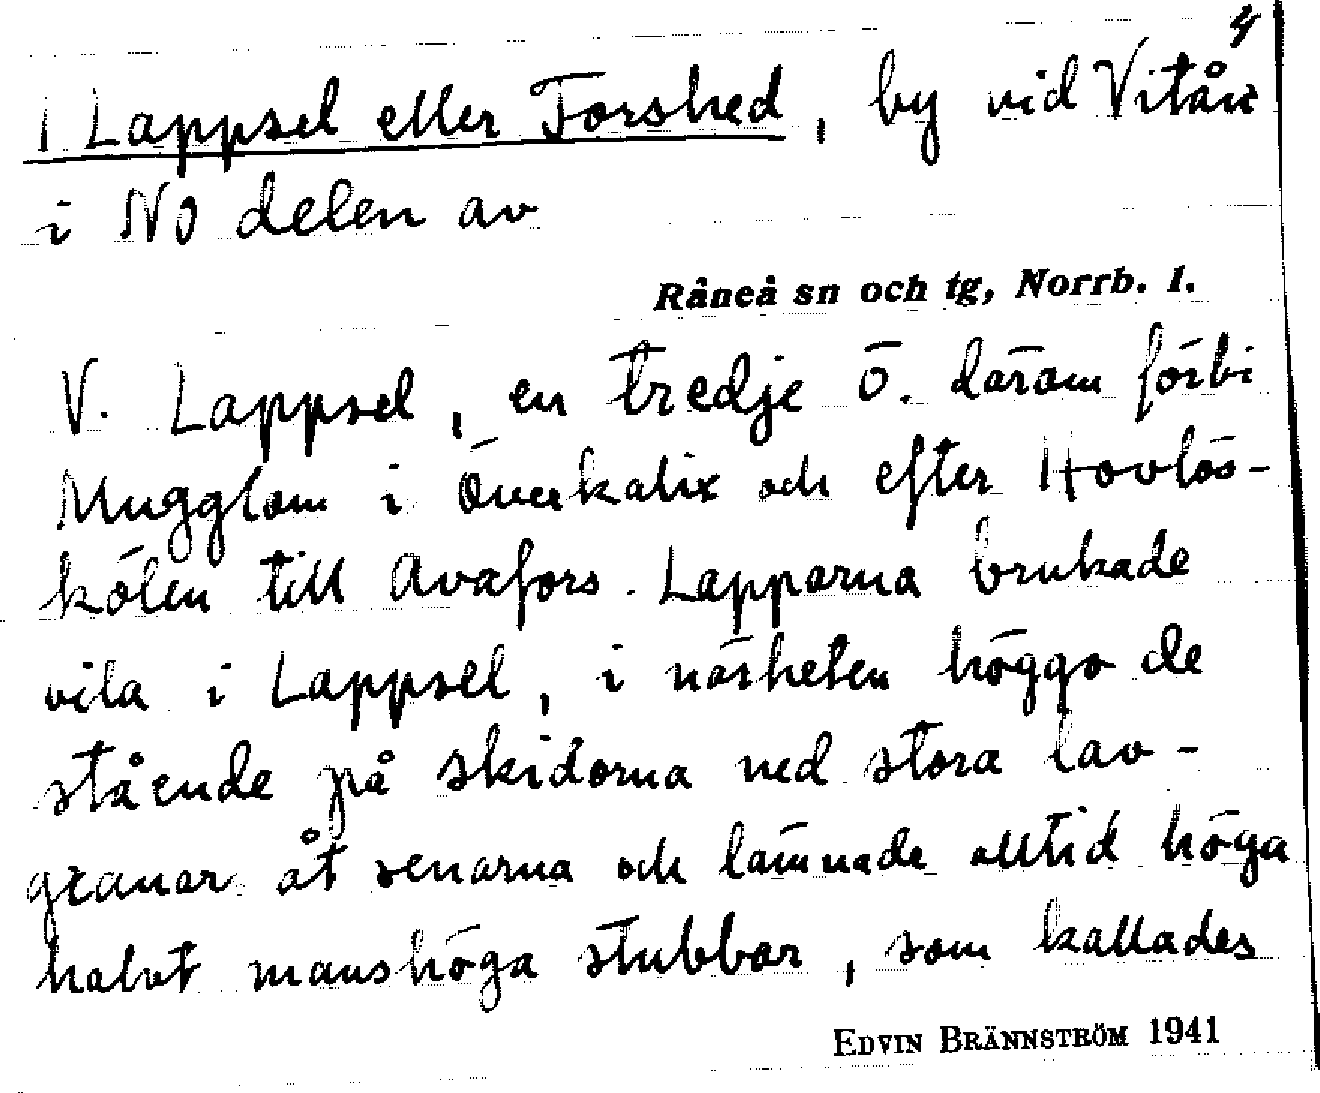 4
1 Lappsel eller Forshed, by vid Vitån
i NO delen av
Råneå sn och tg, Norrb. l.
V. Lappsel, en tredje ö. därom förbi
Mugglom i Överkalix och efter Hovlös-
kölen till Avafors. Lapparna brukade
vila i Lappsel, i närheten höggo de
stående på skidorna ned stora lav-
granar åt renarna och lämnade alltid höga
halvt manshöga stubbar, som kallades
EDVIN BRÄNNSTRÖM 1941